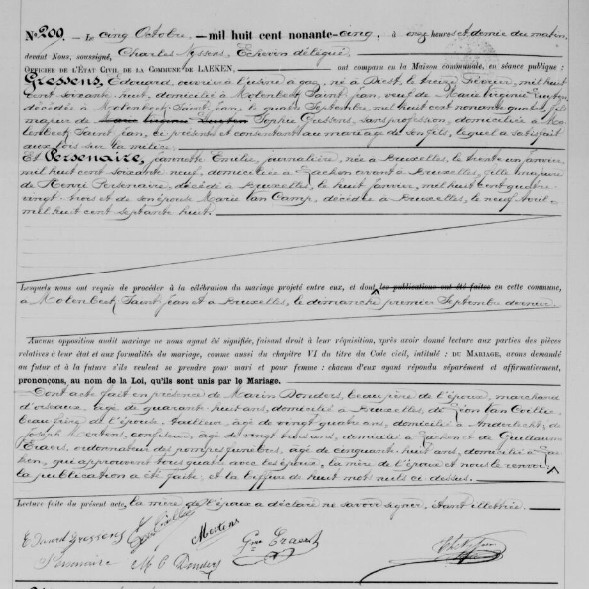 No. 200, — Le cinq Octobre — mil huit cent nonante-cinq, à onze heures et demie du matin,
devant Nous, soussigné, Charles Nyssens, Echevin délégué
OFFICIER DE L'ÉTAT CIVIL DE LA COMMUNE DE LAEKEN, ont comparu en la Maison communale, en séance publique :
Gressens, Edouard, ouvrier à l'usine à gaz, né à Diest, le treize Février, mil huit
cent soixante huit, domicilié à Molenbeek Saint Jean, veuf de Marie Virginie
décédée à Molenbeek Saint Jean, le quinze Septembre, mil huit cent nonante quatre, fils
majeur de Sophie Gressens, sans profession, domiciliée à Mo-
lenbeek Saint Jean, ci présente et consentant au mariage de son fils, lequel a satisfait
aux lois sur la milice.
Et Persenaire, Jannette Emélie, journalière, née à Bruxelles, le trente un janvier
mil huit cent soixante neuf, domiciliée à Laeken avant à Bruxelles, fille majeure
de Henri Persenaire, décédé à Bruxelles, le huit janvier, mil huit cent quatre
vingt-trois et de son épouse Marie Van Camp, décédée à Bruxelles, le neuf Avril
mil huit cent septante huit.
Lesquels nous ont requis de procéder à la célébration du mariage projeté entre eux, et dont les publications ont été faites en cette commune,
à Molenbeek Saint Jean et à Bruxelles, le dimanche premier Septembre dernier.
Aucune opposition audit mariage ne nous ayant été signifiée, faisant droit à leur réquisition, après avoir donné lecture aux parties des pièces
relatives à leur état et aux formalités du mariage, comme aussi du chapitre VI du titre du Code civil, intitulé : DU MARIAGE, avons demandé
au futur et à la future s'ils veulent se prendre pour mari et pour femme : chacun d'eux ayant répondu séparément et affirmativement,
prononçons, au nom de la Loi, qu'ils sont unis par le Mariage.
Dont acte fait en présence de Marin Donders, beau père de l'époux, marchand
d'oiseaux, âgé de quarante huit ans, domicilié à Bruxelles, de Léon Van Coillie,
beau frère de l'épouse, tailleur, âgé de vingt quatre ans, domicilié à Anderlecht, de
Joseph Mertens, âgé de vingt trois ans, domicilié à Laeken et de Guillaume
Eraers, ordonnateur des pompes funèbres, âgé de cinquante huit ans, domicilié à Lae-
ken, qui approuvent tous quatre avec les époux, la mère de l'époux et nous le renvoi
la publication a été faite, et la biffure de huit mots nuls ci dessus.
Lecture faite du présent acte, la mère de l'époux a déclaré ne savoir signer, étant illettrée.
Edouard Gressens Mertens
Persenaire M. C. Donders Gme Eraers